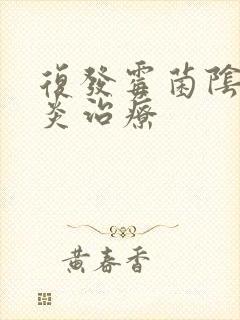 復發霉菌陰
炎治療
黃春香